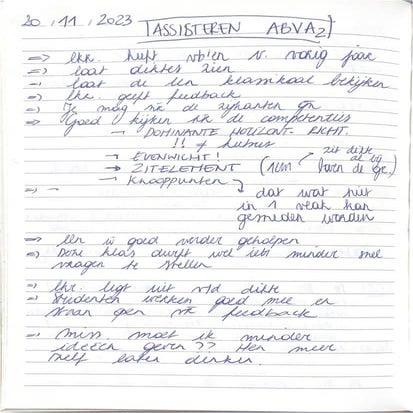 20.11.2023 ASSISTEREN ABVA2
=> lkr. heeft vb'en v. vorig jaar
=> laat dikte zien
- laat de lln klassikaal bekijken
=> lkr. geeft feedback
=> Je mag nr de zijkanten
=> Goed kijken nr de competenties
- DOMINANTE HORIZONT. RICHT.
!! +
-> EVENWICHT! zit dikte
-> ZITELEMENT (1cm boven de
-> Knooppunten
=> - dat wat niet
in 1 vlak kan
gesneden worden
=> lln w goed verder geholpen
=> Deze klas durft wel iets minder snel
vragen te stellen
=> lkr. legt uit v/d dikte
=> studenten werken goed mee en
staan open vr feedback
=> miss. moet ik minder
ideeën geven?? Hen meer
zelf laten denken.